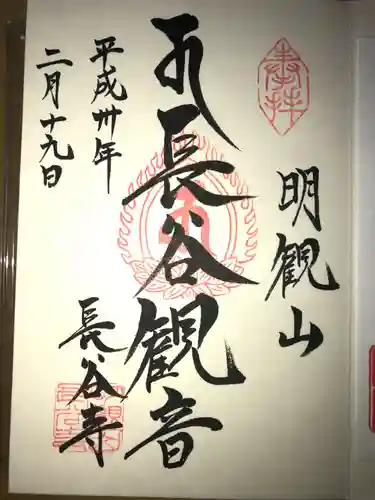 奉拝
明観山
長谷観音
平成卅年
二月十九日
長谷寺